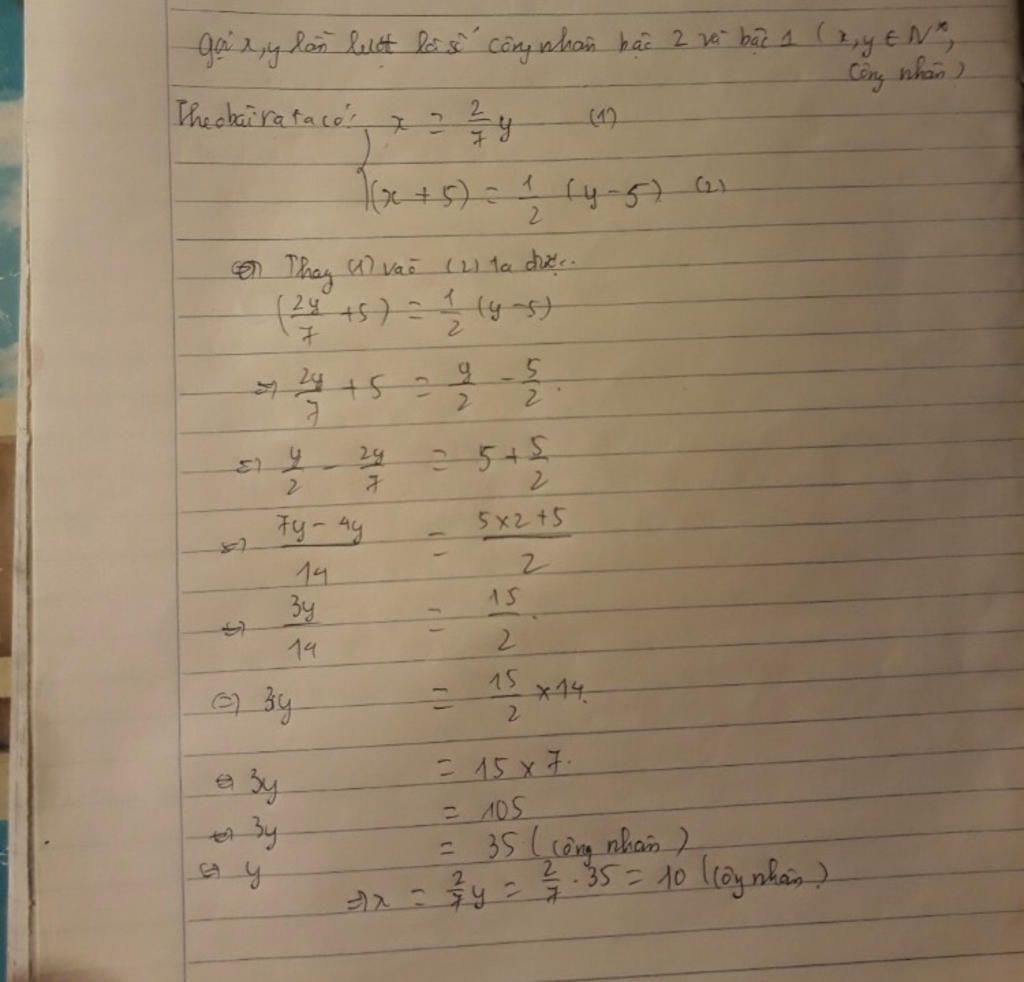 Gọi x, y lần lượt là số công nhân bậc 2 và bậc 1 ( x, y ∈ N*,
công nhân )
Theo bài ra ta có: x = 2/7 y (1)
(x + 5) = 1/2 (y - 5) (2)
⇔ Thay (1) vào (2) ta được..
(2y/7 + 5) = 1/2 (y - 5)
⇔ 2y/7 + 5 = y/2 - 5/2.
⇔ y/2 - 2y/7 = 5 + 5/2
⇔ (7y - 4y)/14 = (5 × 2 + 5)/2
⇔ 3y/14 = 15/2.
⇔ 3y = 15/2 × 14.
⇔ 3y = 15 × 7.
⇔ 3y = 105
⇔ y = 35 ( công nhân )
⇒ x = 2/7 y = 2/7 . 35 = 10 ( công nhân )